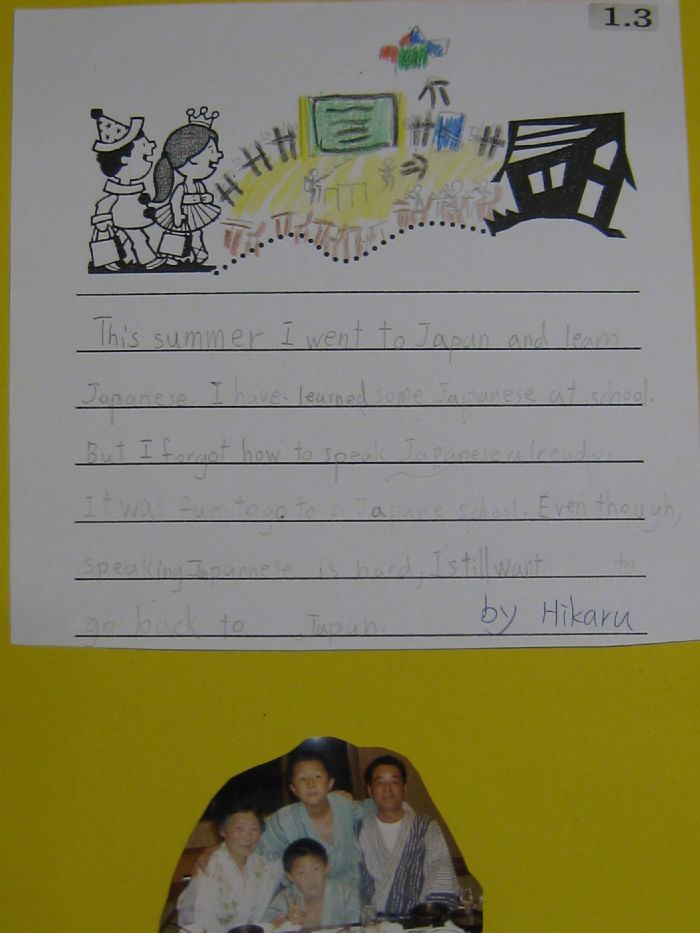 1.3
This summer I went to Japan and learn
Japanese I have learned some Japanese at school.
But I forgot how to speak Japanese already.
It was fun to go to a Japane school. Even though,
speaking Japannese is hard, I still want to
go back to Japan.
by Hikaru